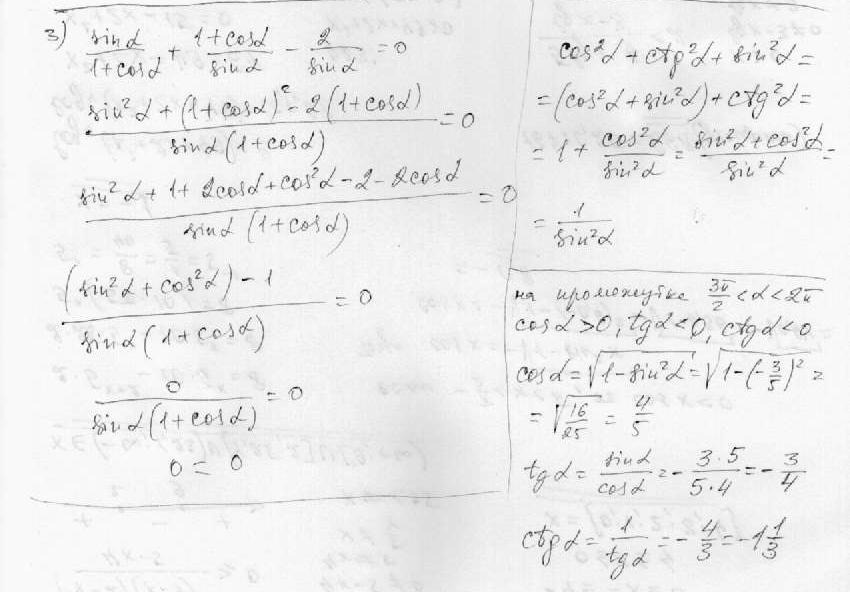 3) sinα/(1+cosα) + (1+cosα)/sinα − 2/sinα = 0
(sin²α + (1+cosα)² − 2(1+cosα))/(sinα(1+cosα)) = 0
(sin²α + 1 + 2cosα + cos²α − 2 − 2cosα)/(sinα (1+cosα)) = 0
((sin²α + cos²α) − 1)/(sinα(1+cosα)) = 0
0/(sinα(1+cosα)) = 0
0 = 0
cos²α + ctg²α + sin²α =
= (cos²α + sin²α) + ctg²α =
= 1 + cos²α/sin²α = (sin²α + cos²α)/sin²α =
= 1/sin²α
на промежутке 3π/2 < α < 2π
cosα > 0, tgα < 0, ctgα < 0
cosα = √(1 − sin²α) = √(1 − (−3/5)²) =
= √(16/25) = 4/5
tgα = sinα/cosα = − (3·5)/(5·4) = − 3/4
ctgα = 1/tgα = − 4/3 = −1 1/3